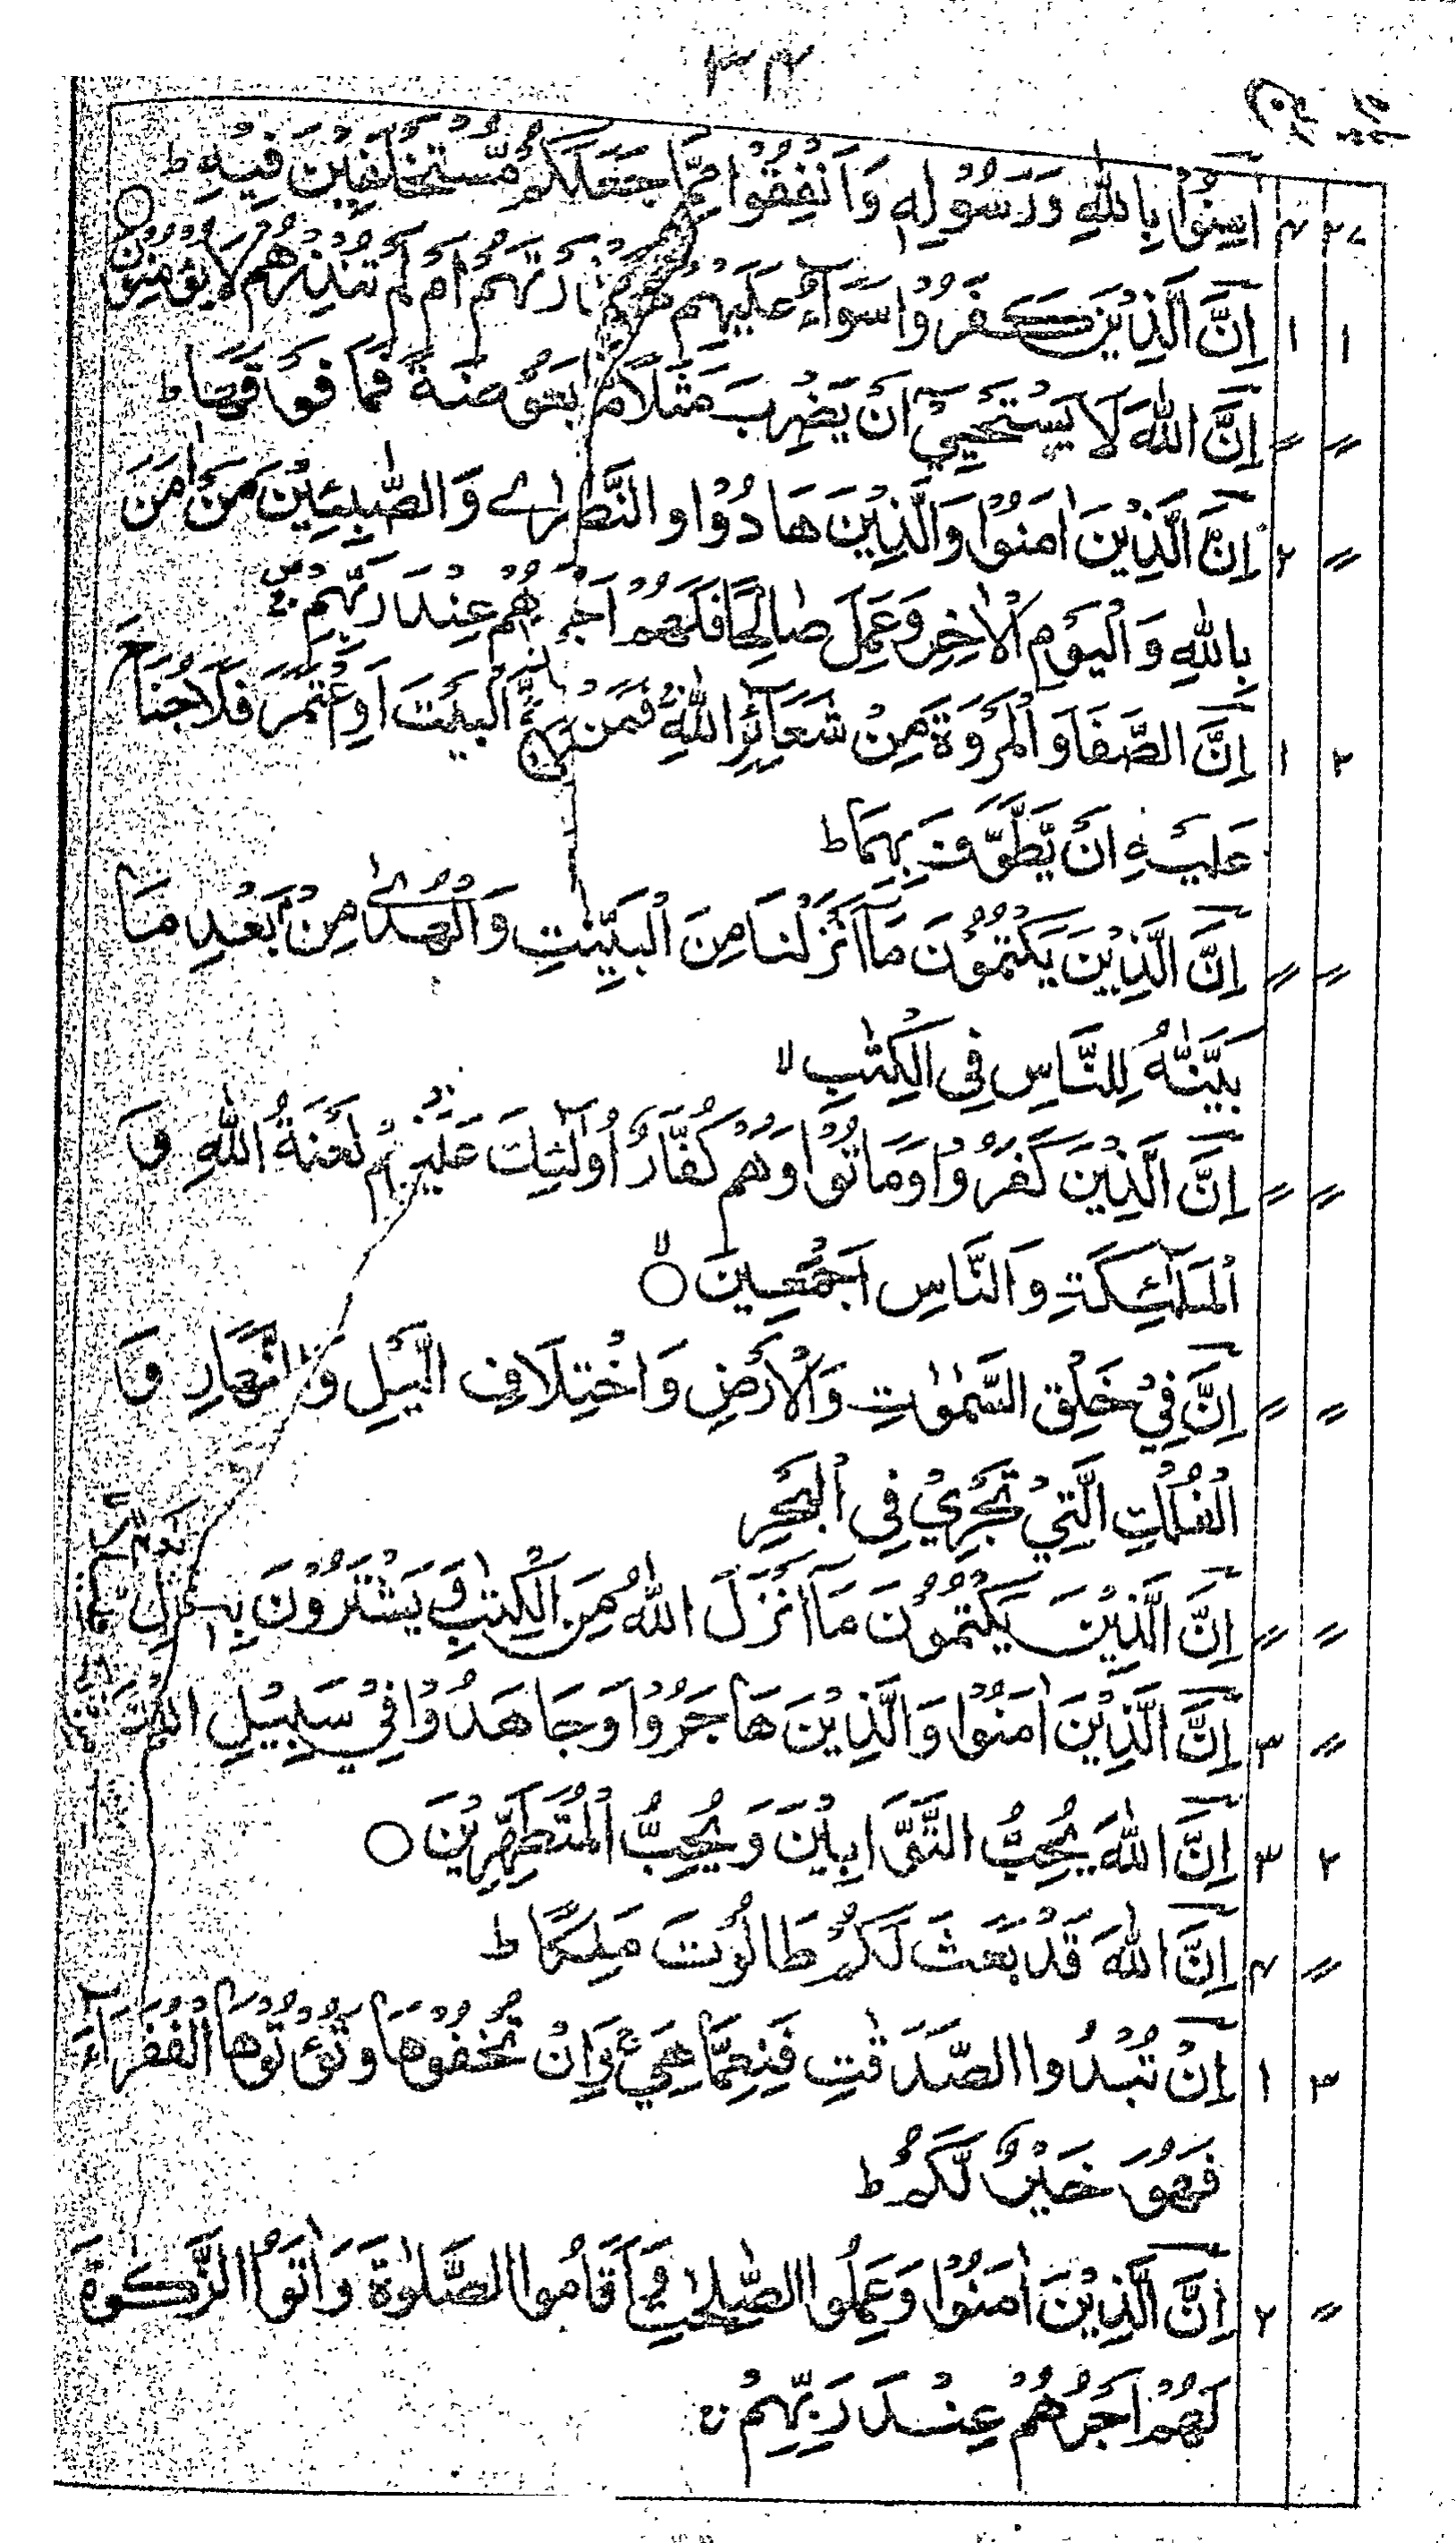 ۳۴
اٰمِنُوْا بِاللّٰهِ وَرَسُوْلِهٖ وَاَنْفِقُوْا مِمَّا جَعَلَكُمْ مُّسْتَخْلَفِيْنَ فِيْهِ ط ۴ ۲۷
اِنَّ الَّذِيْنَ كَفَرُوْا سَوَآءٌ عَلَيْهِمْ ءَاَنْذَرْتَهُمْ اَمْ لَمْ تُنْذِرْهُمْ لَا يُؤْمِنُوْنَ ○ ۱ ۱
اِنَّ اللّٰهَ لَا يَسْتَحْيٖٓ اَنْ يَّضْرِبَ مَثَلًا مَّا بَعُوْضَةً فَمَا فَوْقَهَا ط 〃 〃
اِنَّ الَّذِيْنَ اٰمَنُوْا وَالَّذِيْنَ هَادُوْا وَالنَّصٰرٰے وَالصّٰبِـِٕيْنَ مَنْ اٰمَنَ ۲ 〃
بِاللّٰهِ وَالْيَوْمِ الْاٰخِرِ وَعَمِلَ صَالِحًا فَلَهُمْ اَجْرُهُمْ عِنْدَ رَبِّهِمْ
اِنَّ الصَّفَا وَالْمَرْوَةَ مِنْ شَعَآئِرِ اللّٰهِ فَمَنْ حَجَّ الْبَيْتَ اَوِ اعْتَمَرَ فَلَا جُنَاحَ ۱ ۲
عَلَيْهِ اَنْ يَّطَّوَّفَ بِهِمَا ط
اِنَّ الَّذِيْنَ يَكْتُمُوْنَ مَآ اَنْزَلْنَا مِنَ الْبَيِّنٰتِ وَالْهُدٰى مِنْۢ بَعْدِ مَا 〃 〃
بَيَّنّٰهُ لِلنَّاسِ فِى الْكِتٰبِ لا
اِنَّ الَّذِيْنَ كَفَرُوْا وَمَاتُوْا وَهُمْ كُفَّارٌ اُولٰٓئِكَ عَلَيْهِمْ لَعْنَةُ اللّٰهِ وَ 〃 〃
الْمَلٰٓئِكَةِ وَالنَّاسِ اَجْمَعِيْنَ ○ لا
اِنَّ فِيْ خَلْقِ السَّمٰوٰتِ وَالْاَرْضِ وَاخْتِلَافِ الَّيْلِ وَالنَّهَارِ وَ 〃 〃
الْفُلْكِ الَّتِيْ تَجْرِيْ فِى الْبَحْرِ
اِنَّ الَّذِيْنَ يَكْتُمُوْنَ مَآ اَنْزَلَ اللّٰهُ مِنَ الْكِتٰبِ وَيَشْتَرُوْنَ بِهٖ 〃 〃
اِنَّ الَّذِيْنَ اٰمَنُوْا وَالَّذِيْنَ هَاجَرُوْا وَجَاهَدُوْا فِيْ سَبِيْلِ اللّٰهِ ۳ 〃
اِنَّ اللّٰهَ يُحِبُّ التَّوَّابِيْنَ وَيُحِبُّ الْمُتَطَهِّرِيْنَ ○ ۳ ۲
اِنَّ اللّٰهَ قَدْ بَعَثَ لَكُمْ طَالُوْتَ مَلِكًا ط ۴ 〃
اِنْ تُبْدُوا الصَّدَقٰتِ فَنِعِمَّا هِيَ وَاِنْ تُخْفُوْهَا وَتُؤْتُوْهَا الْفُقَرَآءَ ۱ ۳
فَهُوَ خَيْرٌ لَّكُمْ ط
اِنَّ الَّذِيْنَ اٰمَنُوْا وَعَمِلُوا الصّٰلِحٰتِ وَاَقَامُوا الصَّلٰوةَ وَاٰتَوُا الزَّكٰوةَ ۲ 〃
لَهُمْ اَجْرُهُمْ عِنْدَ رَبِّهِمْ